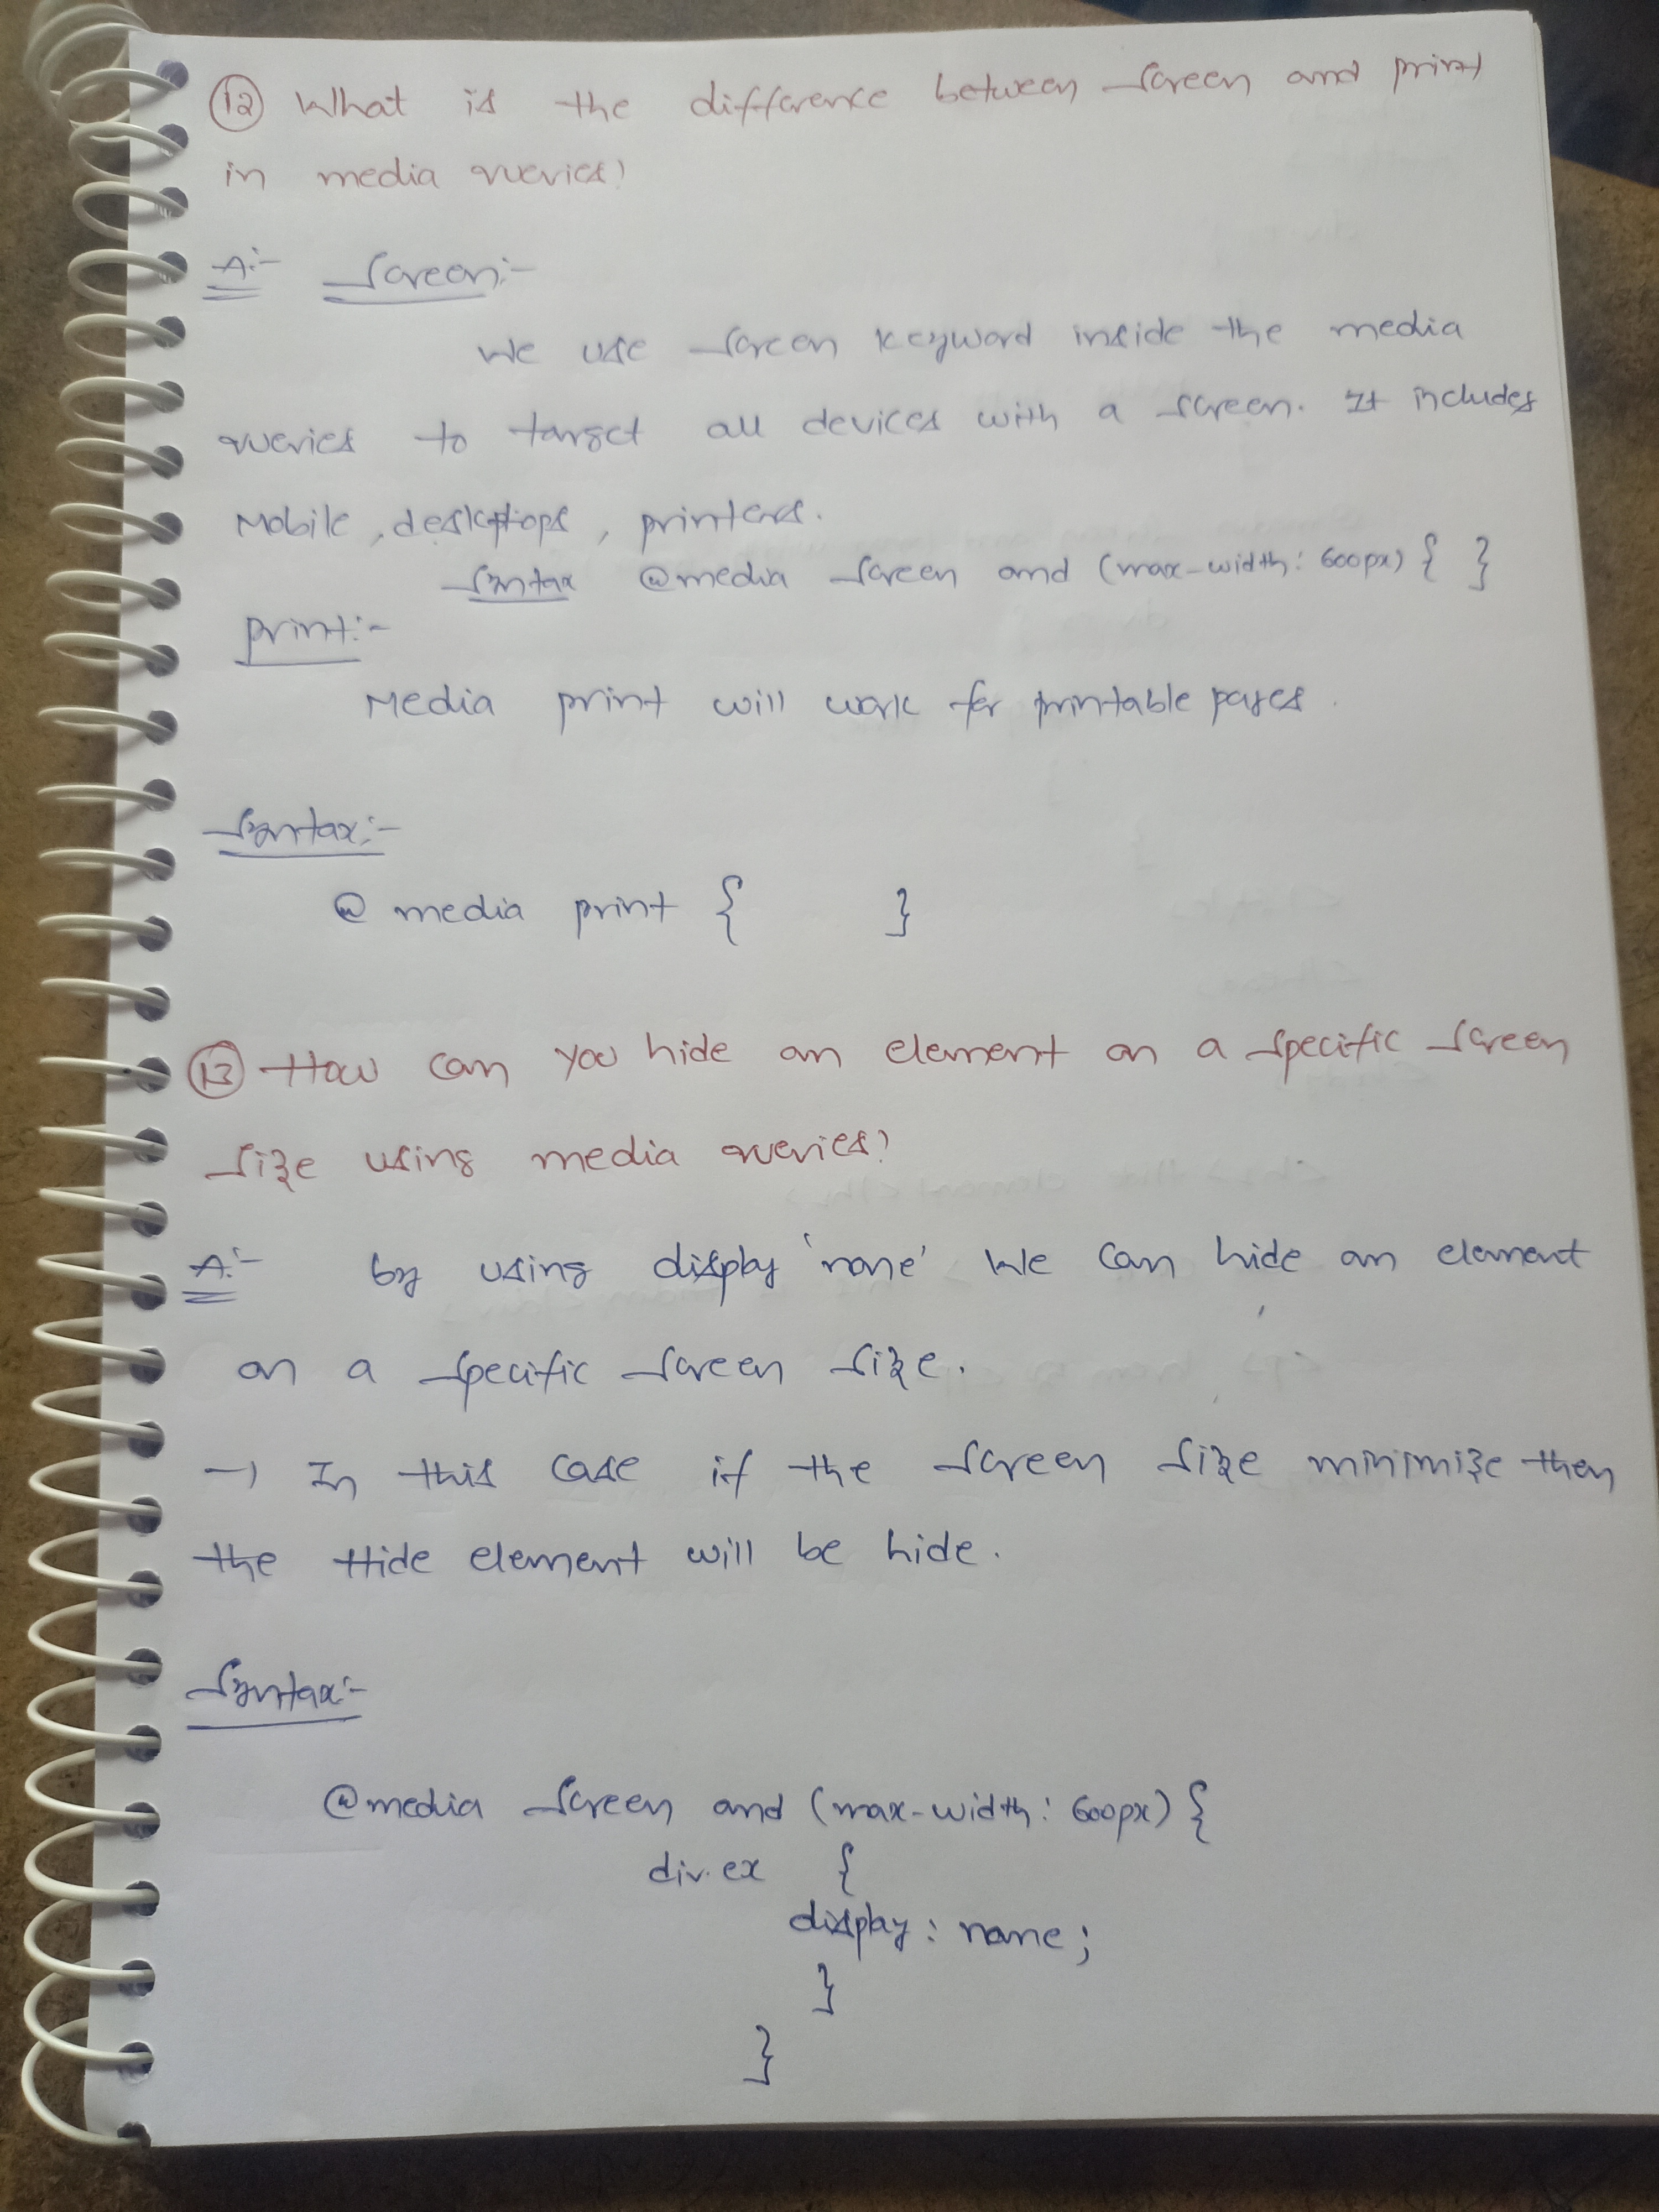 12 What is the difference between screen and print
in media queries?
A:- Screen:-
We use screen keyword inside the media
queries to target all devices with a screen. It includes
Mobile, desktops, printers.
Syntax @media screen and (max-width: 600px) { }
print:-
Media print will work for printable pages.
Syntax:-
@ media print { }
13 How can you hide an element on a specific screen
size using media queries?
A:- by using display 'none' we can hide an element
on a specific screen size.
→ In this case if the screen size minimize then
the Hide element will be hide.
Syntax:-
@media screen and (max-width: 600px) {
div.ex {
display: none;
}
}